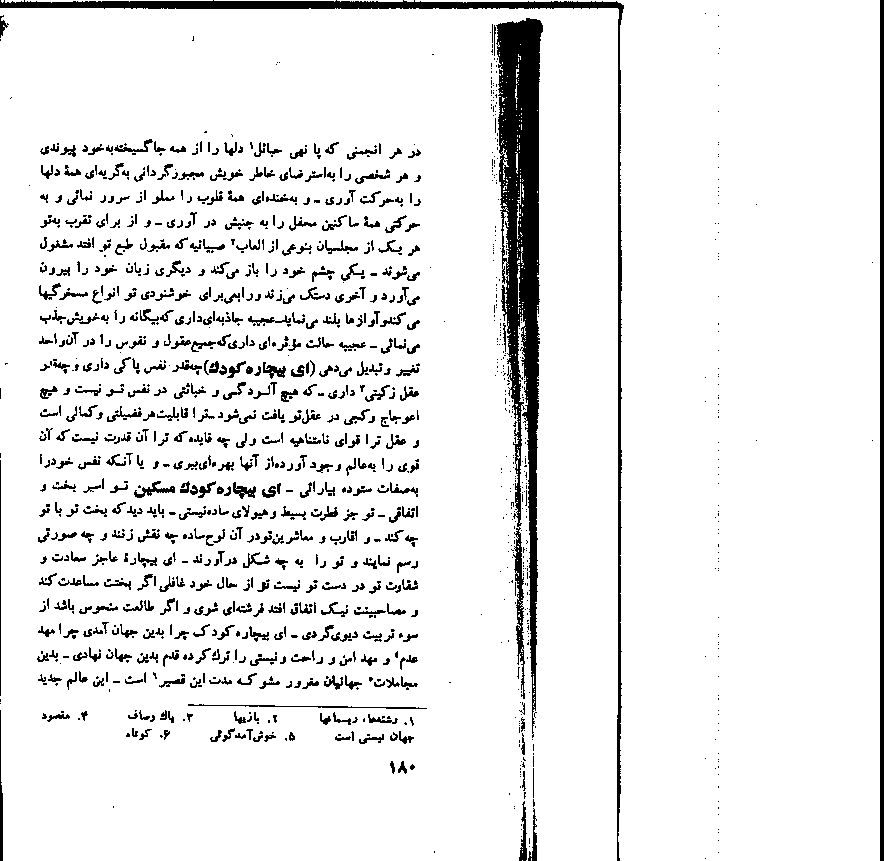 در هر انجمنی که پا نهی حبائل۱ دلها را از همه جا گسیخته به خود پیوندی
و هر شخصی را به استرضای خاطر خویش مجبور گردانی به گریه‌ای همهٔ دلها
را به حرکت آوری ـ و به خنده‌ای همهٔ قلوب را مملو از سرور نمائی و به
حرکتی همهٔ ساکنین محفل را به جنبش در آوری ـ و از برای تقرب به تو
هر یک از مجلسیان بنوعی از العاب۲ صبیانیه که مقبول طبع تو افتد مشغول
می‌شوند ـ یکی چشم خود را باز می‌کند و دیگری زبان خود را بیرون
می‌آورد و آخری دستک می‌زند و رابعی برای خوشنودی تو انواع مسخرگیها
می‌کند و آوازها بلند می‌نماید ـ عجیبه جاذبه‌ای داری که بیگانه را به خویش جذب
می‌نمائی ـ عجیبه حالت مؤثره‌ای داری که جمیع عقول و نفوس را در آن واحد
تغییر و تبدیل می‌دهی (ای بیچاره کودک) چه قدر نفس پاکی داری و چه قدر
عقل زکیتی۳ داری ـ که هیچ آلودگی و خباثتی در نفس تو نیست و هیچ
اعوجاج و کجی در عقل تو یافت نمی‌شود ـ ترا قابلیت هر فضیلتی و کمالی است
و عقل ترا قوای نامتناهیه است ولی چه فایده که ترا آن قدرت نیست که آن
قوی را به عالم وجود آورده از آنها بهره‌ای بری ـ و یا آنکه نفس خود را
به صفات ستوده بیارائی ـ ای بیچاره کودک مسکین تو اسیر بخت و
اتفاقی ـ تو جز فطرت بسیط و هیولای ساده نیستی ـ باید دید که بخت تو با تو
چه کند ـ و اقارب و معاشرین تو در آن لوح ساده چه نقش زنند و چه صورتی
رسم نمایند و تو را به چه شکل درآورند ـ ای بیچارهٔ عاجز سعادت و
شقاوت تو در دست تو نیست تو از حال خود غافلی اگر بختت مساعدت کند
و مصاحبینت نیک اتفاق افتد فرشته‌ای شوی و اگر طالعت منحوس باشد از
سوء تربیت دیوی گردی ـ ای بیچاره کودک چرا بدین جهان آمدی چرا مهد
عدم۴ و مهد امن و راحت و نیستی را ترک کرده قدم بدین جهان نهادی ـ بدین
مجاملات۵ جهانیان مغرور مشو که مدت این قصیر۶ است ـ این عالم جدید
۱. رشته‌ها، ریسمانها ۲. بازیها ۳. پاک و صاف ۴. مقصود
جهان نیستی است ۵. خوش‌آمدگوئی ۶. کوتاه
۱۸۰